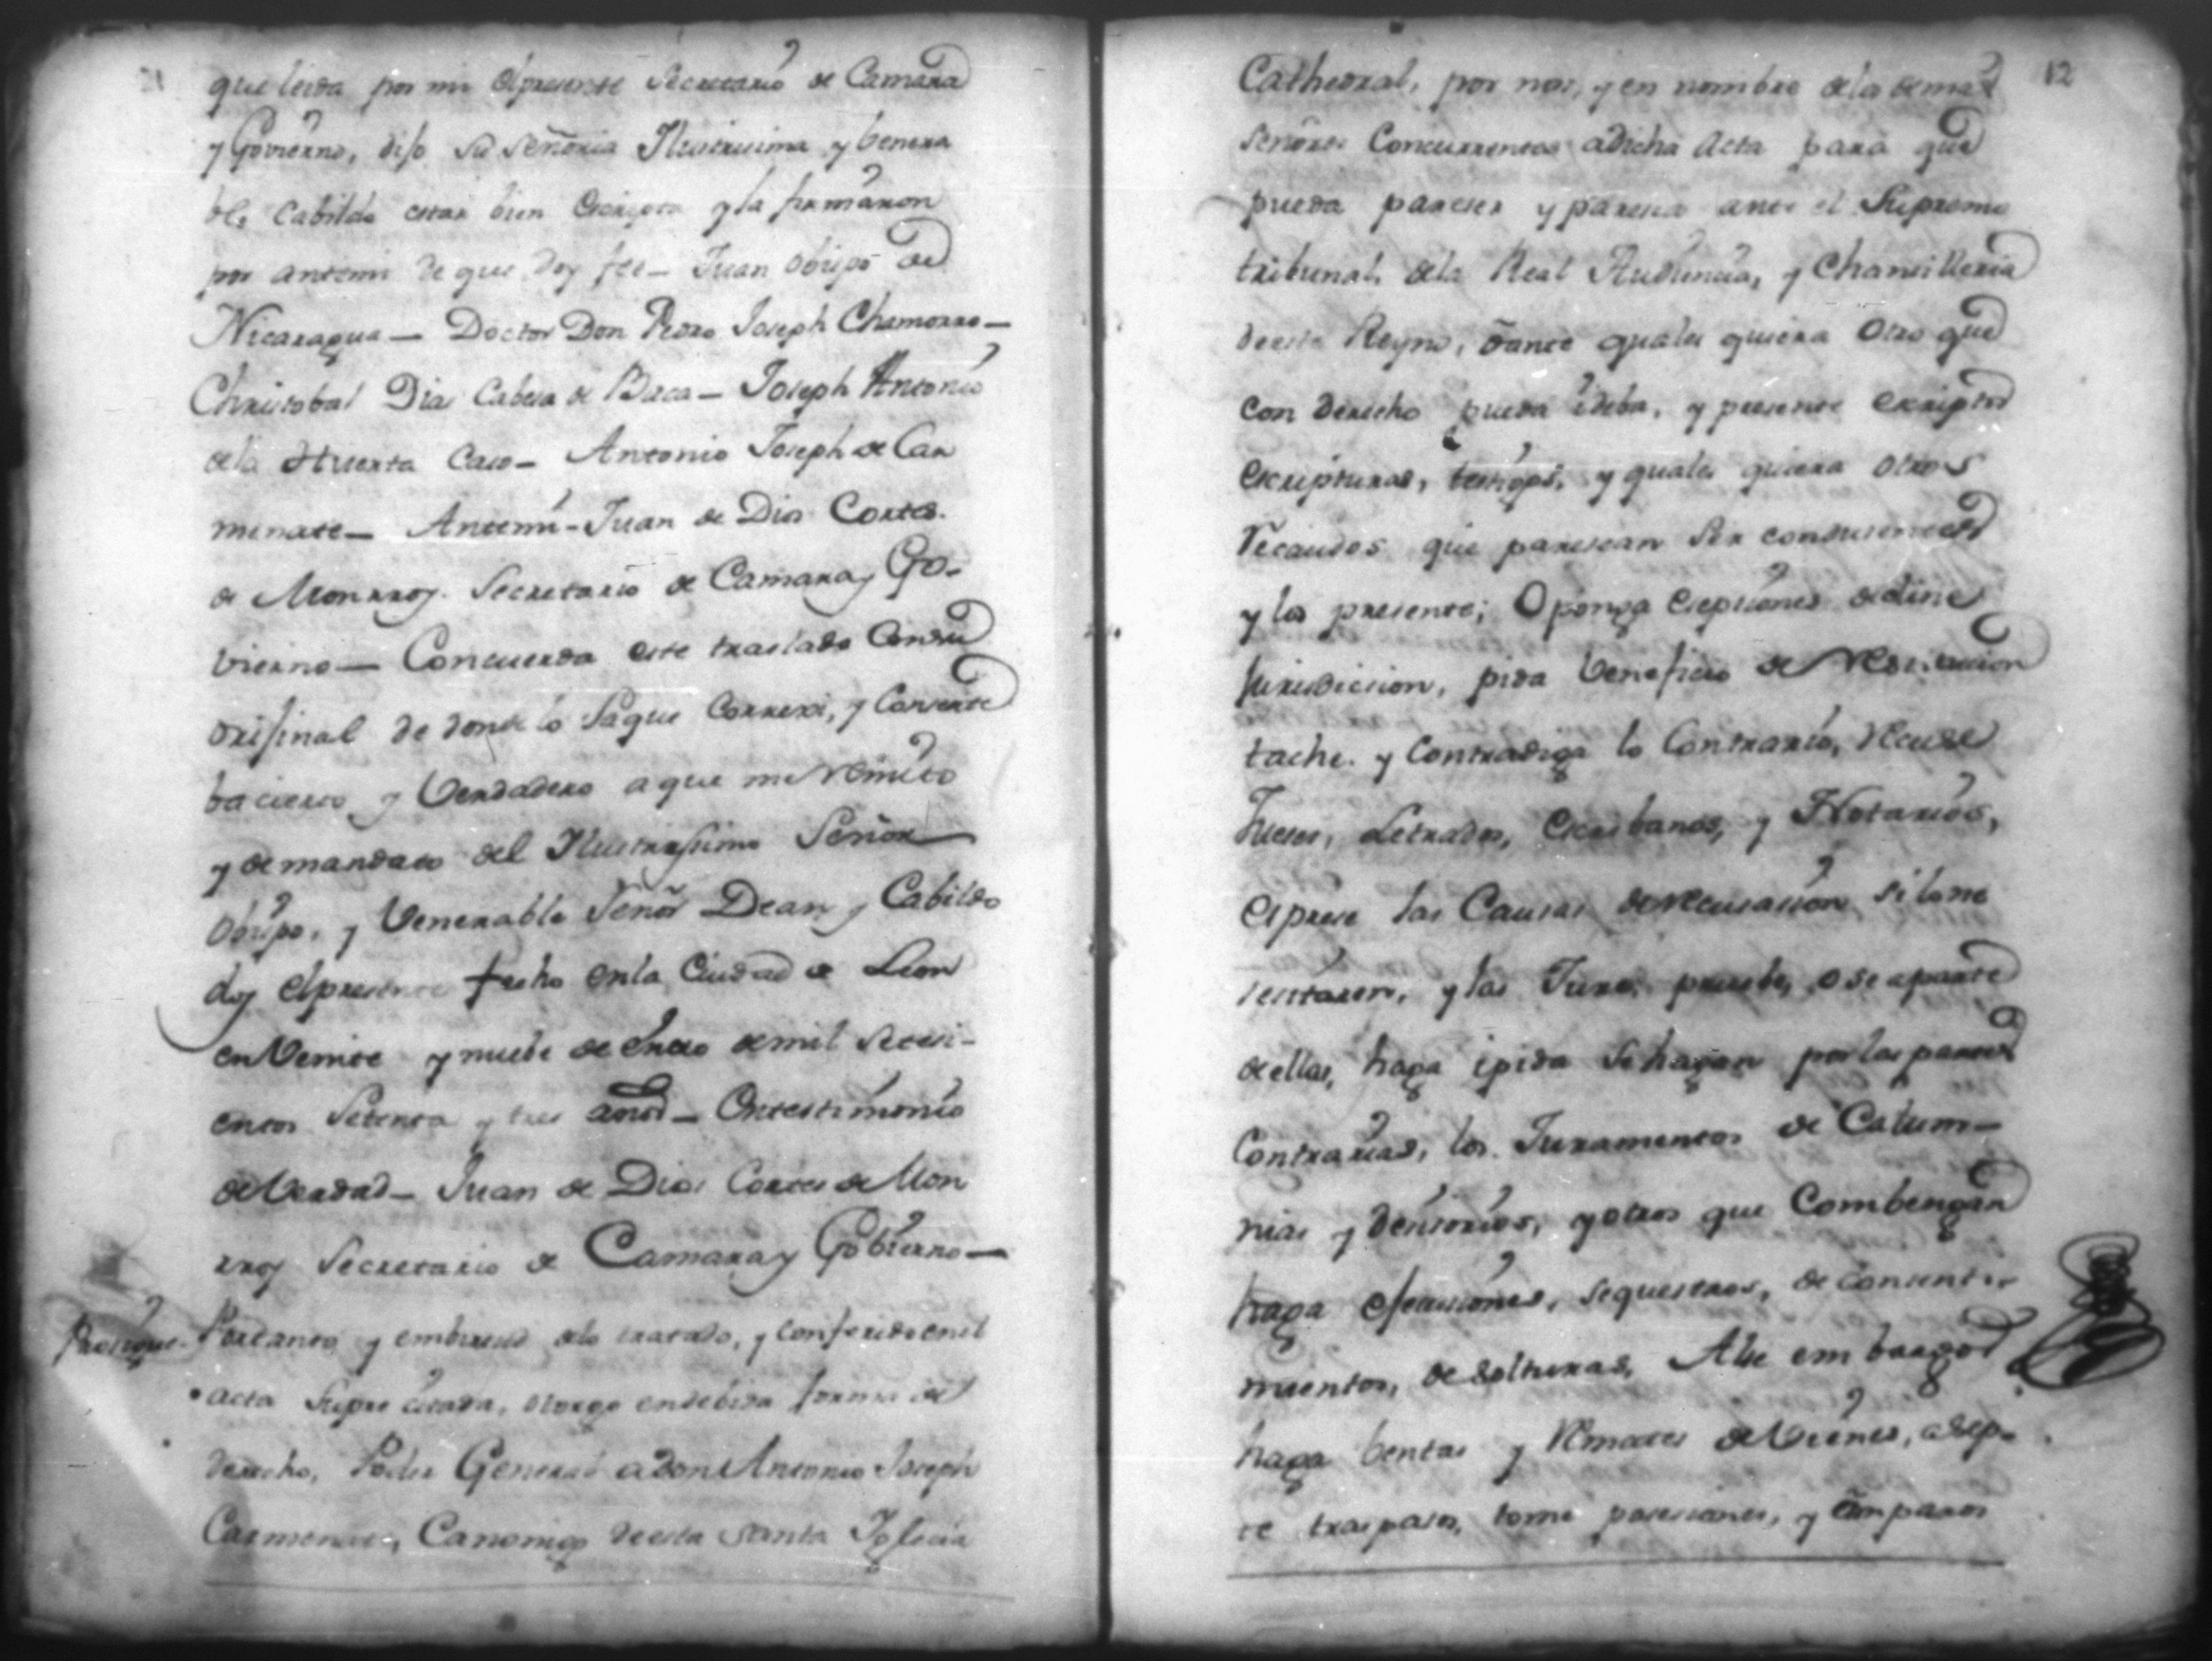 que leida por mi el presente Secretario de Camara
y Govierno, dijo Su Señoria Ilustrisima y benera
ble Cabildo estar bien Escripta y la firmaron
por antemi de que doy fee — Juan Obispo de
Nicaragua — Doctor Don Pedro Joseph Chamorro —
Christobal Dias Cabesa de Baca — Joseph Antonio
de la Huerta Caso — Antonio Joseph de Car
menate — Antemi - Juan de Dios Cortes
de Monrroy. Secretario de Camara y Go-
vierno — Concuerda este traslado Con su
orijinal de donde lo Saque Correxi, y Conserte
ba cierto y Verdadero a que me remito
y de mandato del Ilustrissimo Señor
Obispo, y Venerable Señor Dean y Cabildo
doy el presente fecho en la Ciudad de Leon
en Veinte y nuebe de Enero de mil Setesi-
entos Setenta y tres años — En testimonio
de Verdad — Juan de Dios Cortes de Mon
rroy Secretario de Camara y Gobierno —
Prosigue. Por tanto y en birtud de lo tratado, y conferido en el
acta Supra citada, otorgo en debida forma de
derecho, Poder General a don Antonio Joseph
Carmenate, Canonigo de esta Santa Iglecia
12
Cathedral, por nos, y en nombre de los demas
Señores Concurrentes a dicha Acta para que
pueda pareser y paresca ante el Supremo
tribunal de la Real Audiencia, y Chansilleria
de este Reyno, o ante quales quiera Otro que
con derecho pueda i deba, y presente escriptos
escripturas, testigos, y quales quiera otros
recaudos que parescan Ser condusentes
y los presente; Oponga Excepsiones decline
Jurisdiccion, pida Veneficio de restitucion
tache y Contradiga lo Contrario, recuse
Jueses, Letrados, Escribanos, y Notarios,
Esprese las Causas de recusasion Si lo ne
sesitaren, y las Jure, pruebe, o se aparte
de ellas, haga i pida Se hagan por las partes
Contrarias, los Juramentos de Calum-
nias y desisorios, y otros que Combengan
haga Ejecusiones, sequestros, de consenti-
mientos, de Solturas, Alse embargos
haga bentas y remates de Vienes, asep-
te traspasos, tome posesiones, y amparos